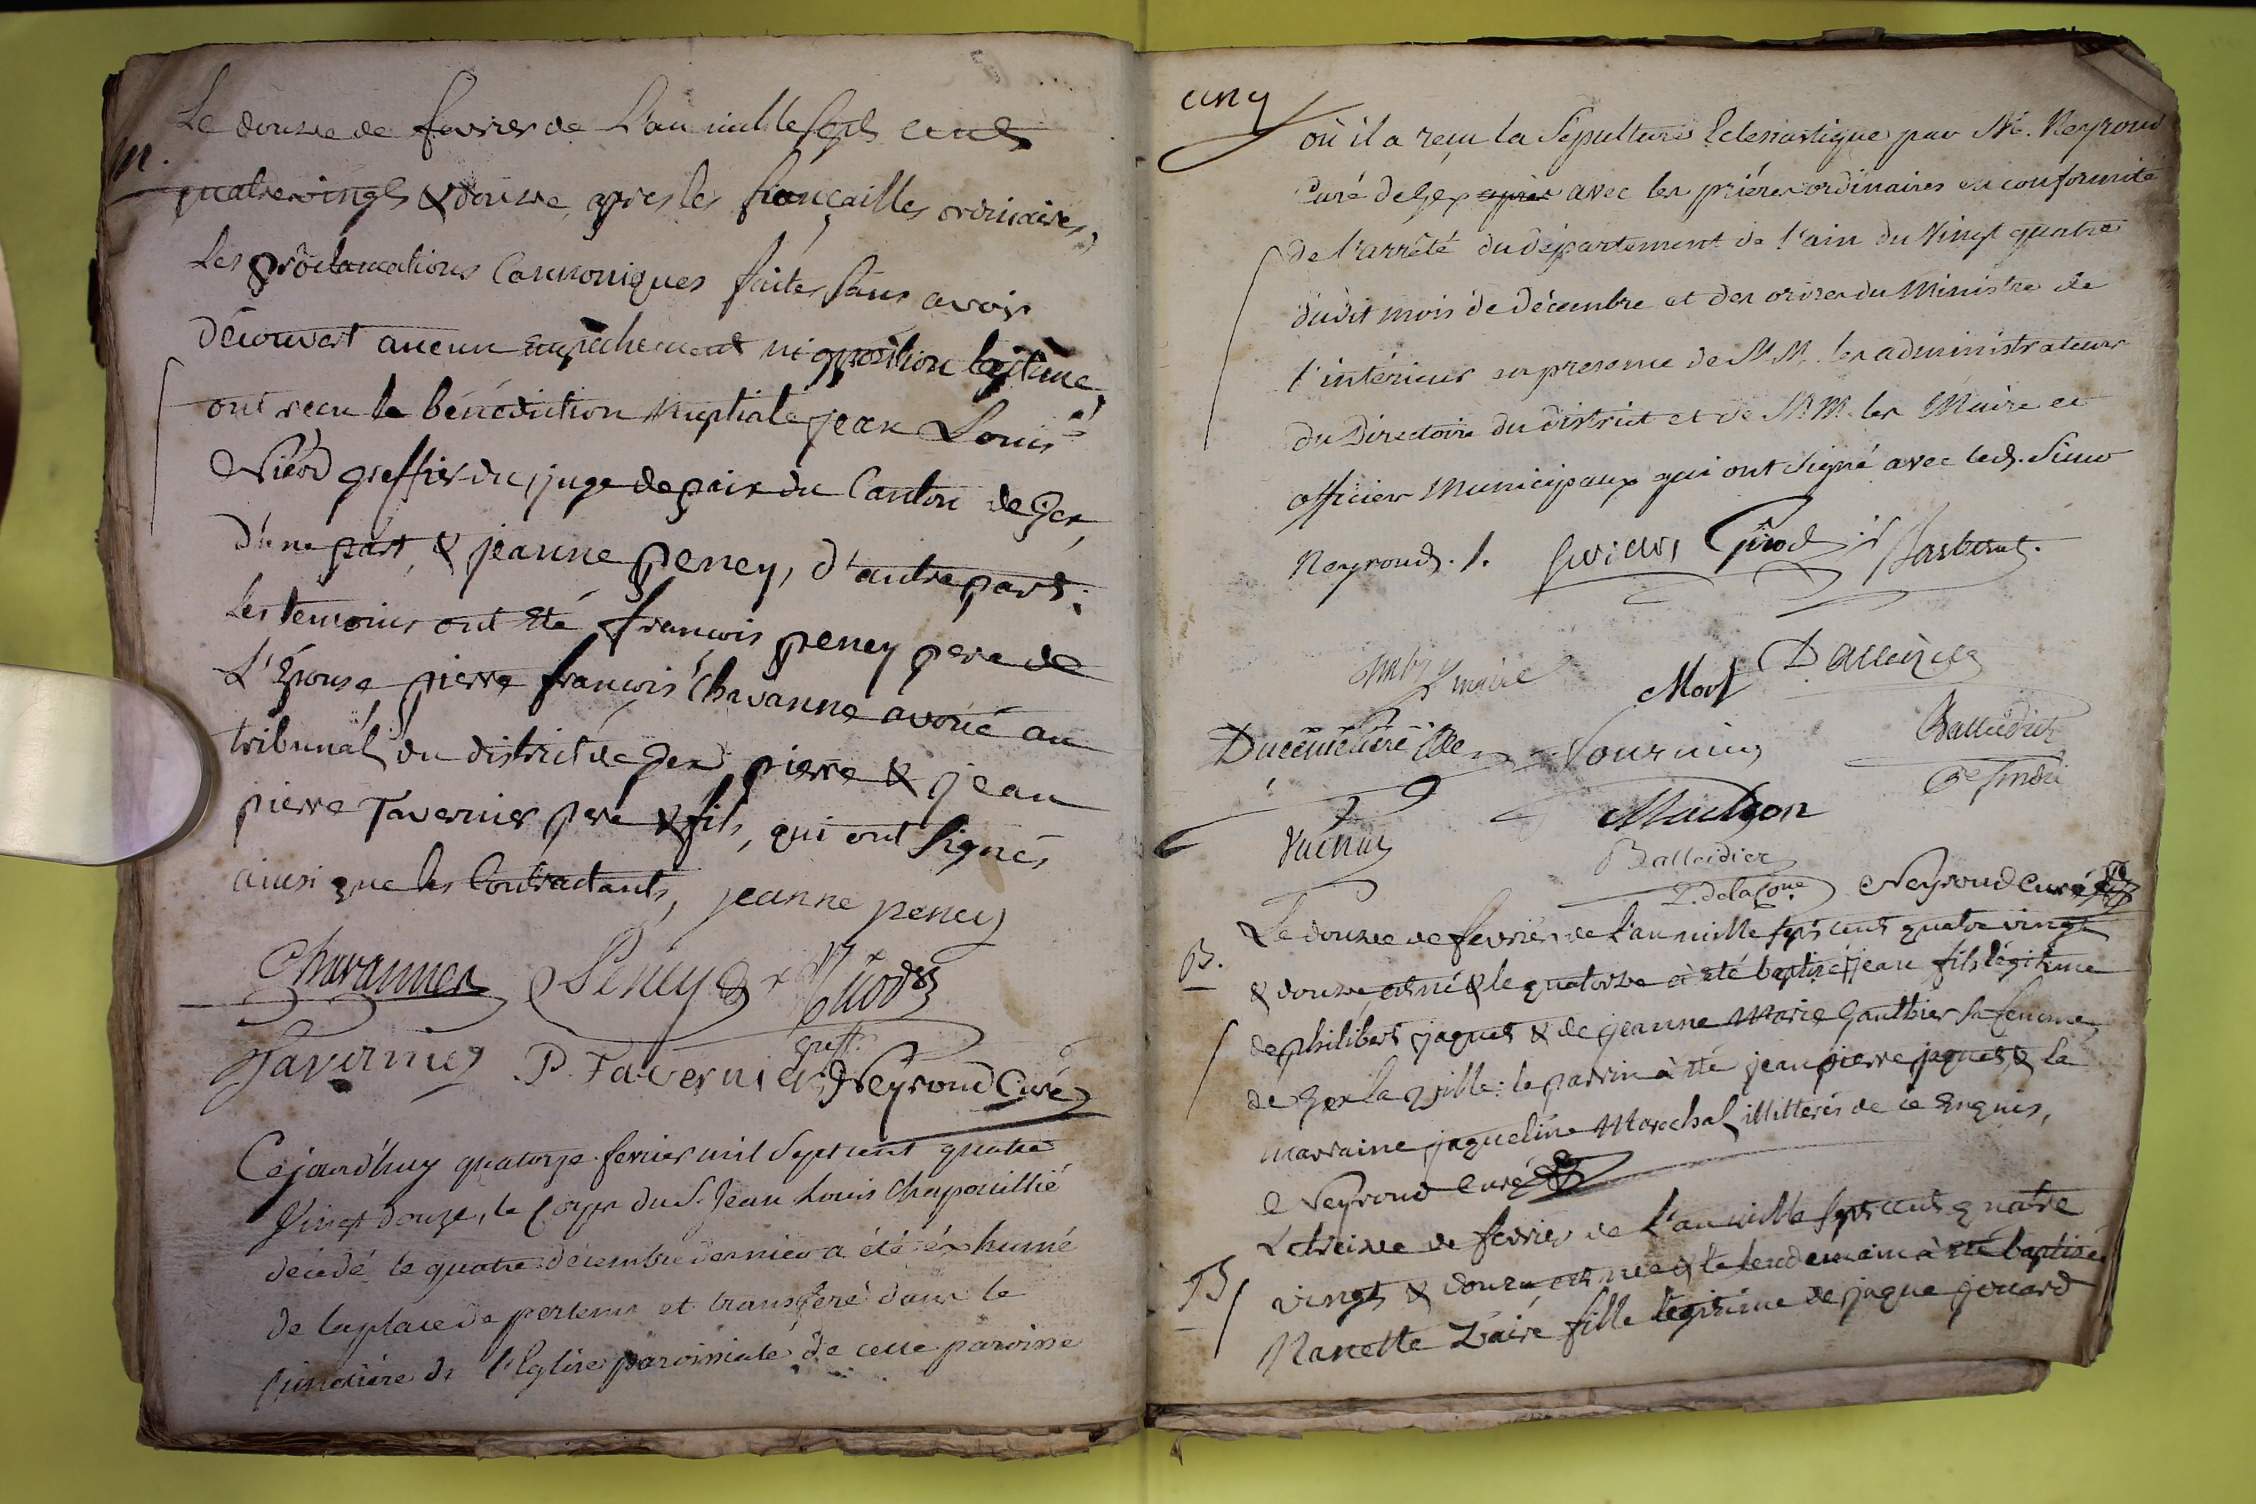 m.
Le douze de fevrier de L'an mille sept cents
quatrevingts & douze, apres les fiançailles ordinaires,
les proclamations Cannoniques faites sans avoir
découvert aucun Empechement ni opposition legitime,
ont recu la bénédiction Nuptiale jean Louis
greffier du juge de paix du Canton de Gex,
d'une part, & jeanne peney, d'autre part.
les temoins ont été françois peney pere de
L'Epouse pierre françois Chavanne avoué au
tribunal du district de Gex pierre & jean
pierre Tavernier pere & fils, qui ont signés
ainsi que les Contractants, jeanne peney
Chavannes Peney
greff.
Tavernier P. Tavernier Neyroud Curé
Cejourd'huy quatorze fevrier mil sept cent quatre
Vingt douze, le Corps du S. Jean Louis Chapouillié
décédé le quatre décembre dernier a été éxhumé
de la place de pertems et transferé dans le
Cimetière de l'Eglise paroissiale de cette paroisse
cinq
où il a reçu la Sépulture Eclesiastique par Mr. Neyroud
Curé de Gex après avec les priéres ordinaires en conformité
de l'arrêté du département de l'ain du Vingt quatre
dudit mois de décembre et des ordres du Ministre de
l'intérieur en presence de M.M. les administrateurs
du Directoire du district et de M.M. les Maire et
officiers Municipaux qui ont signé avec led. Sieur
Neyroud. /. Girod
maire Mort
Fournier Balleidier
Machon
Balleidier
Neyroud Curé
B.
Le douze de fevrier de L'an mille sept cent quatre vingt
& douze est né & le quatorze à été baptisé jean fils légitime
de philibert jaquet & de jeanne Marie Gauthier sa femme,
de Gex la ville: le parrin à été jean pierre jaquet, & la
marraine jaqueline Marechal illitterés de ce Enquis,
Neyroud Curé
B
Le treize de fevrier de L'an mille sept cent quatre
vingts & douze est née & le lendemain à été baptisée
Nanette Zaïre fille legitime de jaque gouard